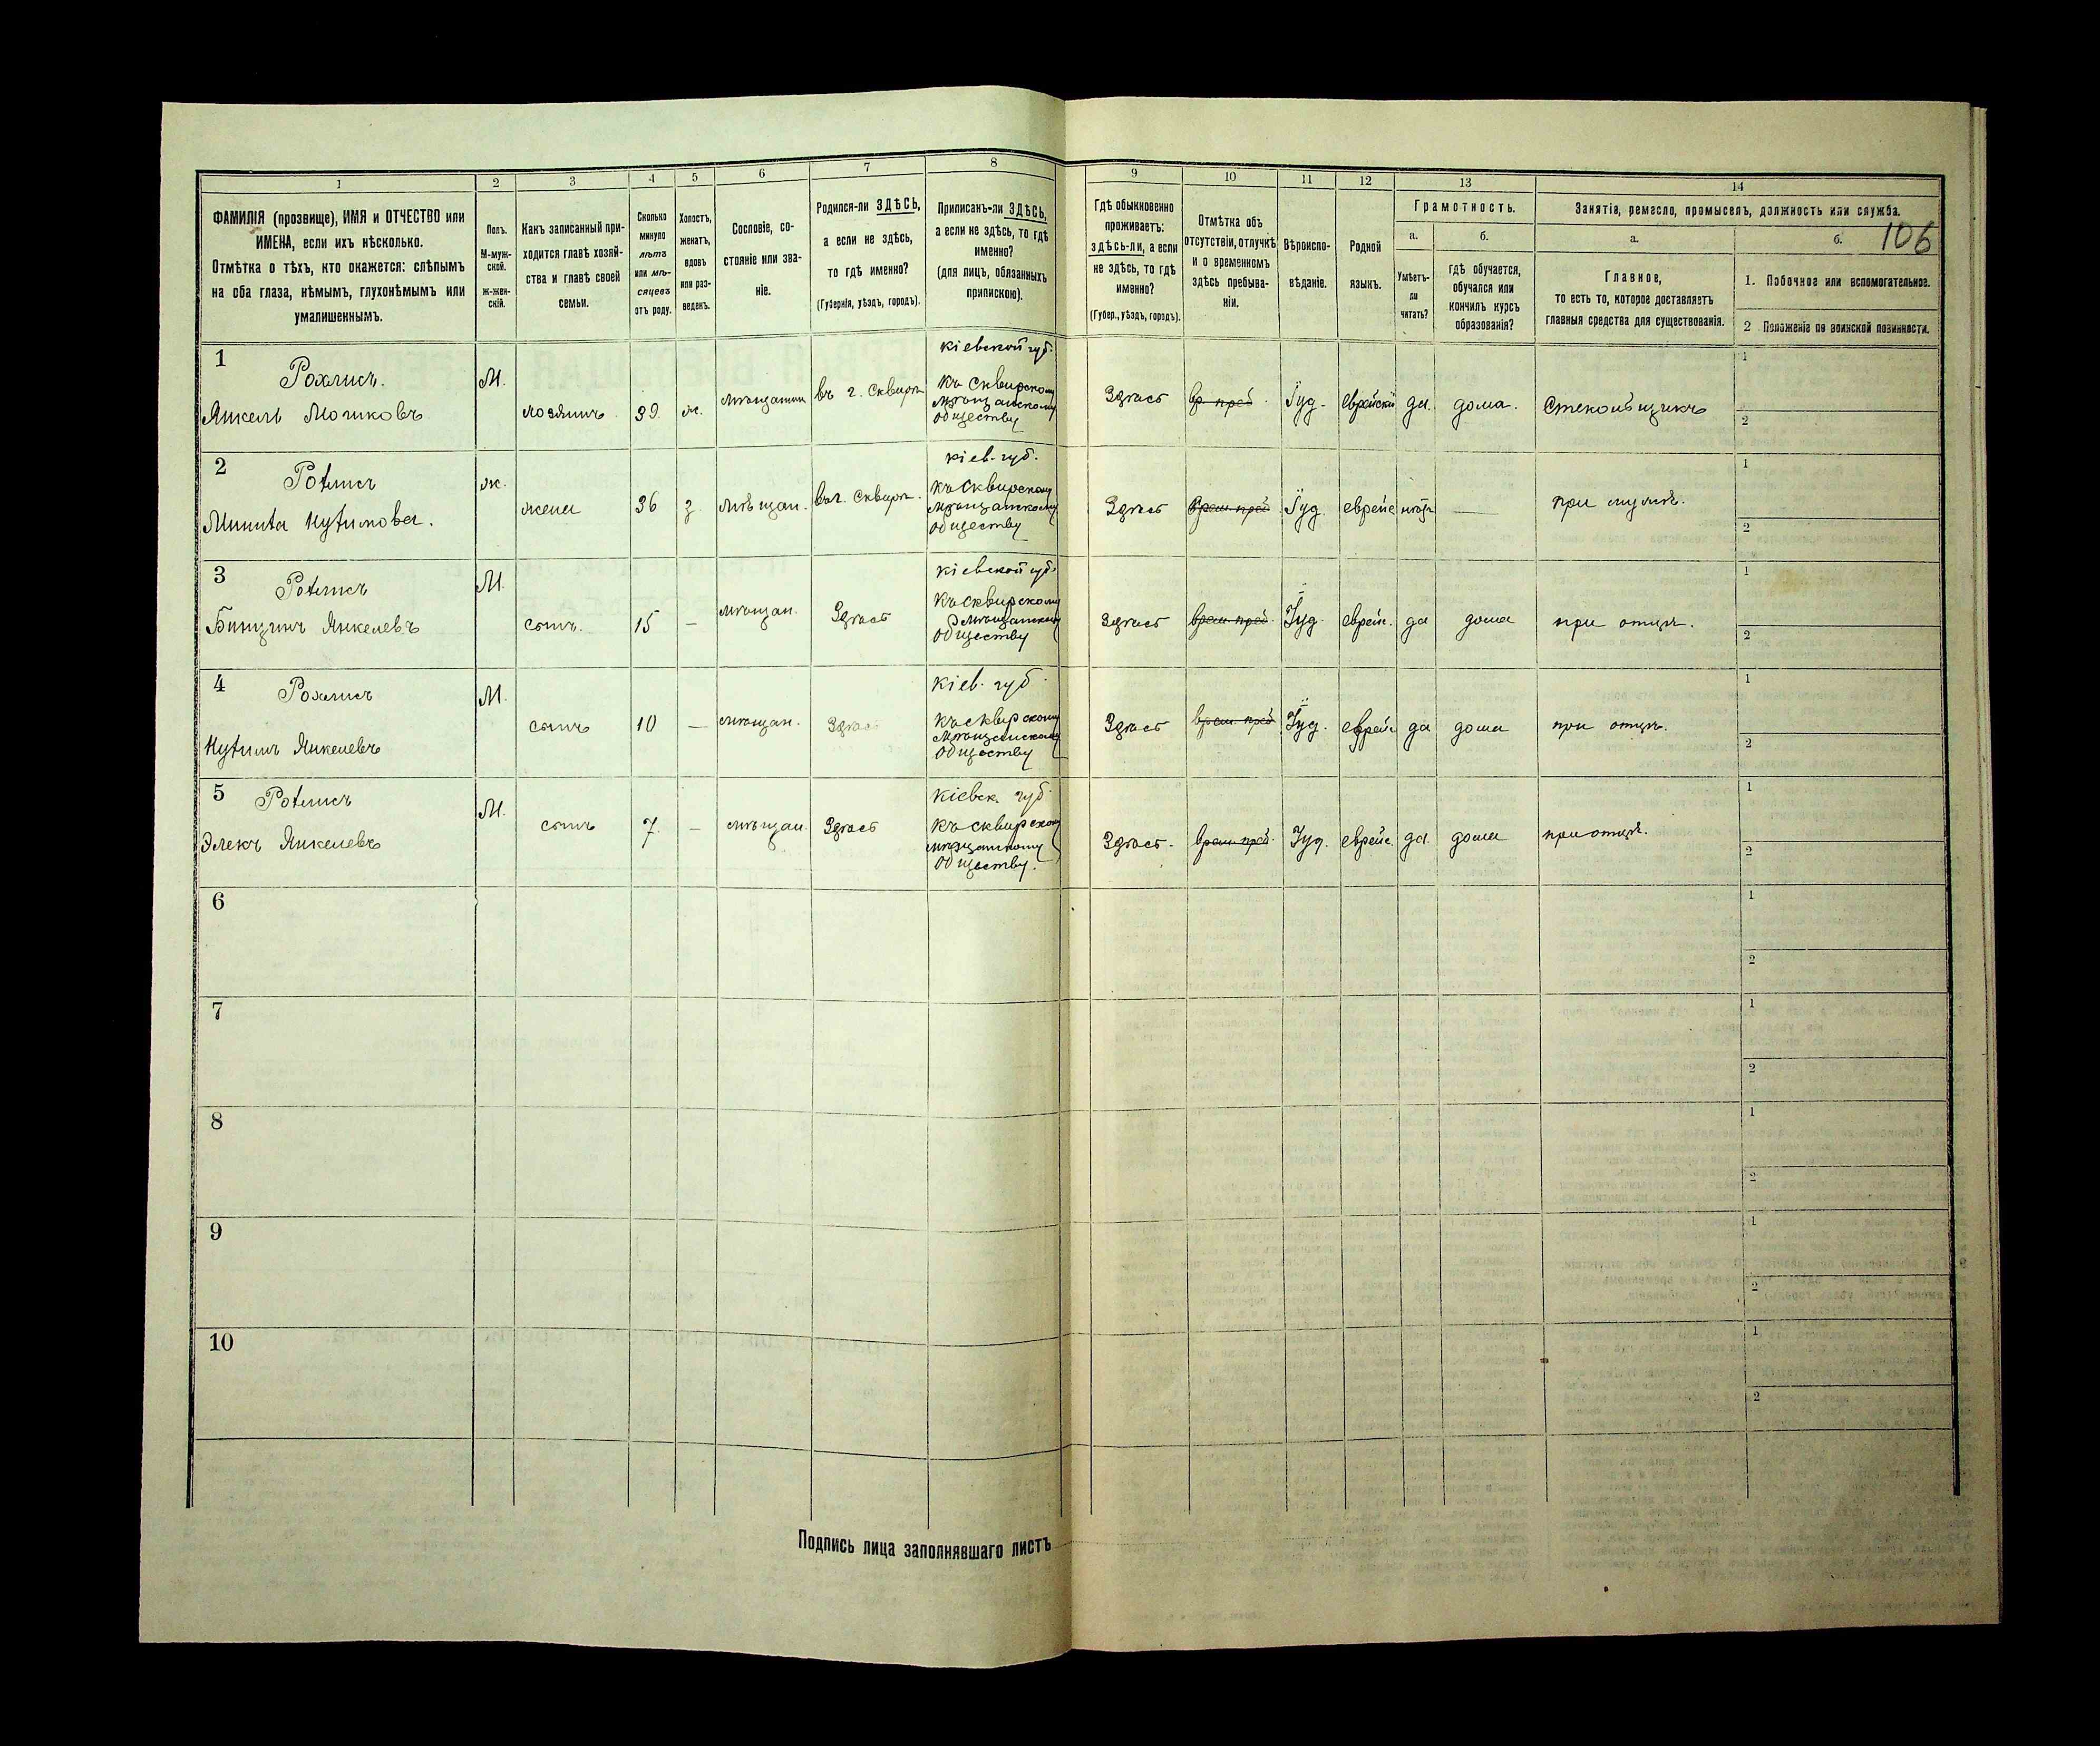 1 2 3 4 5 6 7 8 9 10 11 12 13 14
ФАМИЛІЯ (прозвище), ИМЯ и ОТЧЕСТВО или
ИМЕНА, если ихъ нѣсколько.
Отмѣтка о тѣхъ, кто окажется: слѣпымъ
на оба глаза, нѣмымъ, глухонѣмымъ или
умалишеннымъ.
Полъ.
М-муж-
ской.
ж-жен-
скій.
Какъ записанный при-
ходится главѣ хозяй-
ства и главѣ своей
семьи.
Сколько
минуло
лѣтъ
или мѣ-
сяцевъ
отъ роду.
Холостъ,
женатъ,
вдовъ
или раз-
веденъ.
Сословіе, со-
стояніе или зва-
ніе.
Родился-ли ЗДѢСЬ,
а если не здѣсь,
то гдѣ именно?
(Губернія, уѣздъ, городъ).
Приписанъ-ли ЗДѢСЬ,
а если не здѣсь, то гдѣ
именно?
(для лицъ, обязанныхъ
припискою).
Гдѣ обыкновенно
проживаетъ:
здѣсь-ли, а если
не здѣсь, то гдѣ
именно?
(Губер., уѣздъ, городъ).
Отмѣтка объ
отсутствіи, отлучкѣ
и о временномъ
здѣсь пребыва-
ніи.
Вѣроиспо-
вѣданіе.
Родной
языкъ.
Грамотность.
а.
Умѣетъ-
ли
читать?
б.
гдѣ обучается,
обучался или
кончилъ курсъ
образованія?
Занятіе, ремесло, промыселъ, должность или служба.
106
а.
Главное,
то есть то, которое доставляетъ
главныя средства для существованія.
б.
1. Побочное или вспомогательное.
2 Положеніе по воинской повинности.
1
Рохлисъ.
Янкель Мошковъ
М.
хозяинъ
39.
ж.
мѣщанин
въ г. Сквирѣ
кіевской губ.
Къ Сквирскому
мѣщанскому
обществу
Здѣсь
вр. преб.
Іуд.
еврейскій
да.
дома.
Стекольщикъ
1
2
2
Рохлисъ
Нухимова.
ж.
жена
36
з.
мѣщан.
въ г. Сквирѣ.
кіев. губ.
Къ Сквирскому
мѣщанскому
обществу
Здѣсь
врем. преб.
Іуд.
еврейс
нѣтъ
при мужѣ.
1
2
3
Рохлисъ
Янкелевъ
М.
сынъ.
15
—
мѣщан.
Здѣсь
кіевской губ.
Къ Сквирскому
мѣщанскому
обществу
Здѣсь
врем. преб.
Іуд.
еврейс.
да
дома
при отцѣ.
1
2
4
Рохлисъ
Нухимъ Янкелевъ
М.
сынъ
10
—
мѣщан.
Здѣсь
кіев. губ
Къ сквирскому
мѣщанскому
обществу
Здѣсь
врем. преб
Іуд.
еврейс
да
дома
при отцѣ.
1
2
5
Рохлисъ
Элекъ Янкелевъ
М.
сынъ
7.
—
мѣщан.
Здѣсь
кіевск. губ.
Къ сквирскому
мѣщанскому
обществу.
Здѣсь.
врем. преб.
Іуд.
еврейс.
да.
дома
при отцѣ.
1
2
6
1
2
7
1
2
8
1
2
9
1
2
10
1
2
Подпись лица заполнявшаго листъ